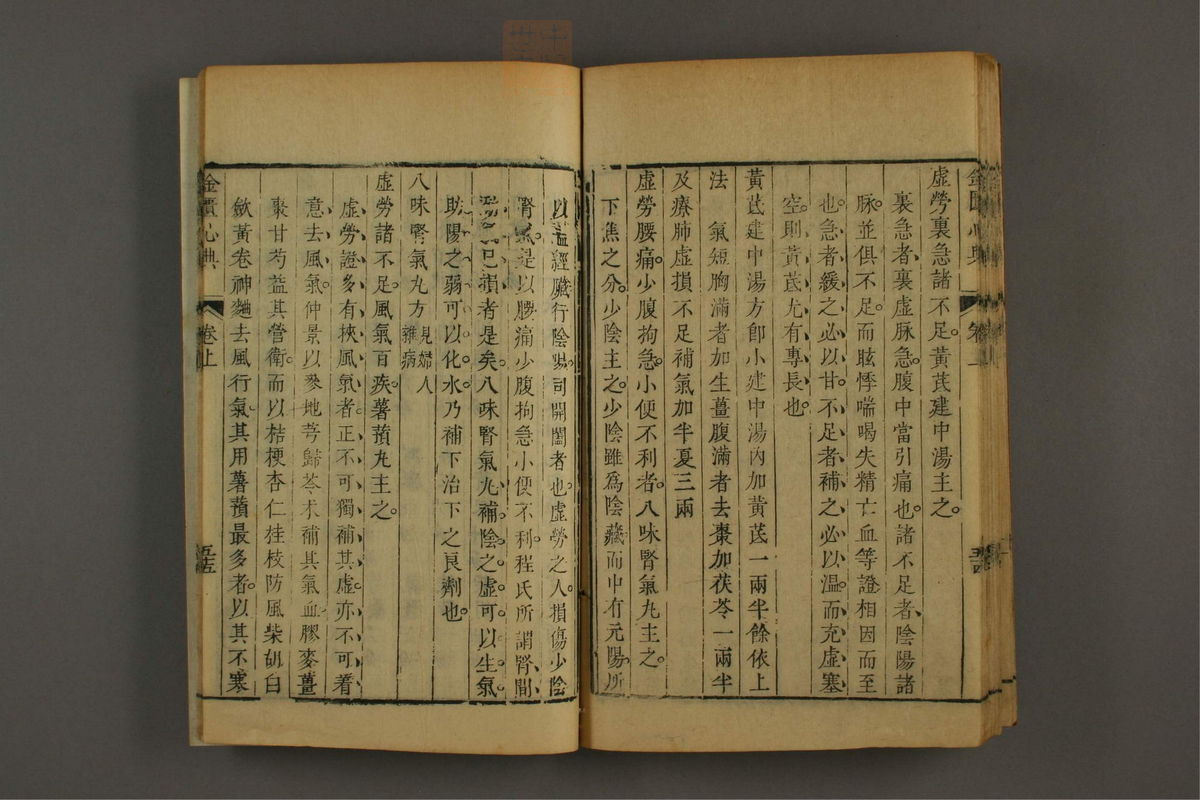 虛勞裏急諸不足黃芪建中湯主之
裏急者裏虛脉急腹中當引痛也諸不足者陰陽諸
脉並俱不足而眩悸喘喝失精亡血等證相因而至
也急者緩之必以甘不足者補之必以温而充虛塞
空則黃芪尤有專長也
黃芪建中湯方即小建中湯內加黃芪一兩半餘依上
法　氣短胸滿者加生薑腹滿者去棗加茯苓一兩半
及療肺虛損不足補氣加半夏三兩
虛勞腰痛少腹拘急小便不利者八味腎氣丸主之
下焦之分少陰主之少陰雖爲陰藏而中有元陽所
以温經臟行陰陽司開闔者也虛勞之人損傷少陰
腎氣是以腰痛少腹拘急小便不利程氏所謂腎間
動氣已損者是矣八味腎氣丸補陰之虛可以生氣
助陽之弱可以化水乃補下治下之良劑也
八味腎氣丸方見婦人雜病
虛勞諸不足風氣百疾薯蕷丸主之
虛勞證多有挾風氣者正不可獨補其虛亦不可着
意去風氣仲景以參地芎歸苓朮補其氣血膠麥薑
棗甘芍益其營衛而以桔梗杏仁桂枝防風柴胡白
斂黃卷神麯去風行氣其用薯蕷最多者以其不寒
金匱心典
卷上